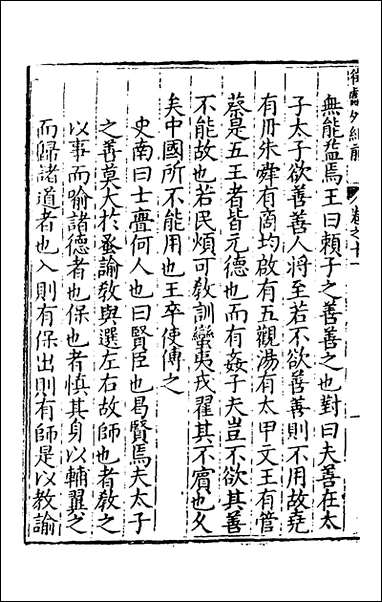 無能益焉王曰賴子之善善之也對曰夫善在太
子太子欲善善人將至若不欲善善則不用故堯
有丹朱舜有商均啟有五觀湯有太甲文王有管
蔡是五王者皆元德也而有姦子夫豈不欲其善
不能故也若民煩可教訓蠻夷戎翟其不賔也乆
矣中國所不能用也王卒使傅之
史南曰士亹何人也曰賢臣也曷賢焉夫太子
之善莫大於蚤諭敎與選左右故師也者敎之
以事而喻諸德者也保也者慎其身以輔翼之
而歸諸道者也入則有保出則有師是以教諭
卷之十一